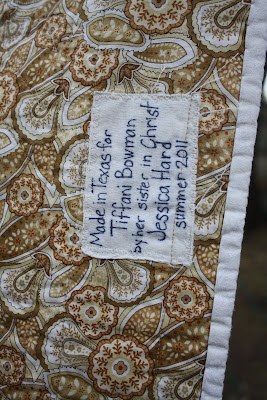 Made in Texas for
Tiffani Bowman
by her sister in Christ
Jessica Hard
summer 2011